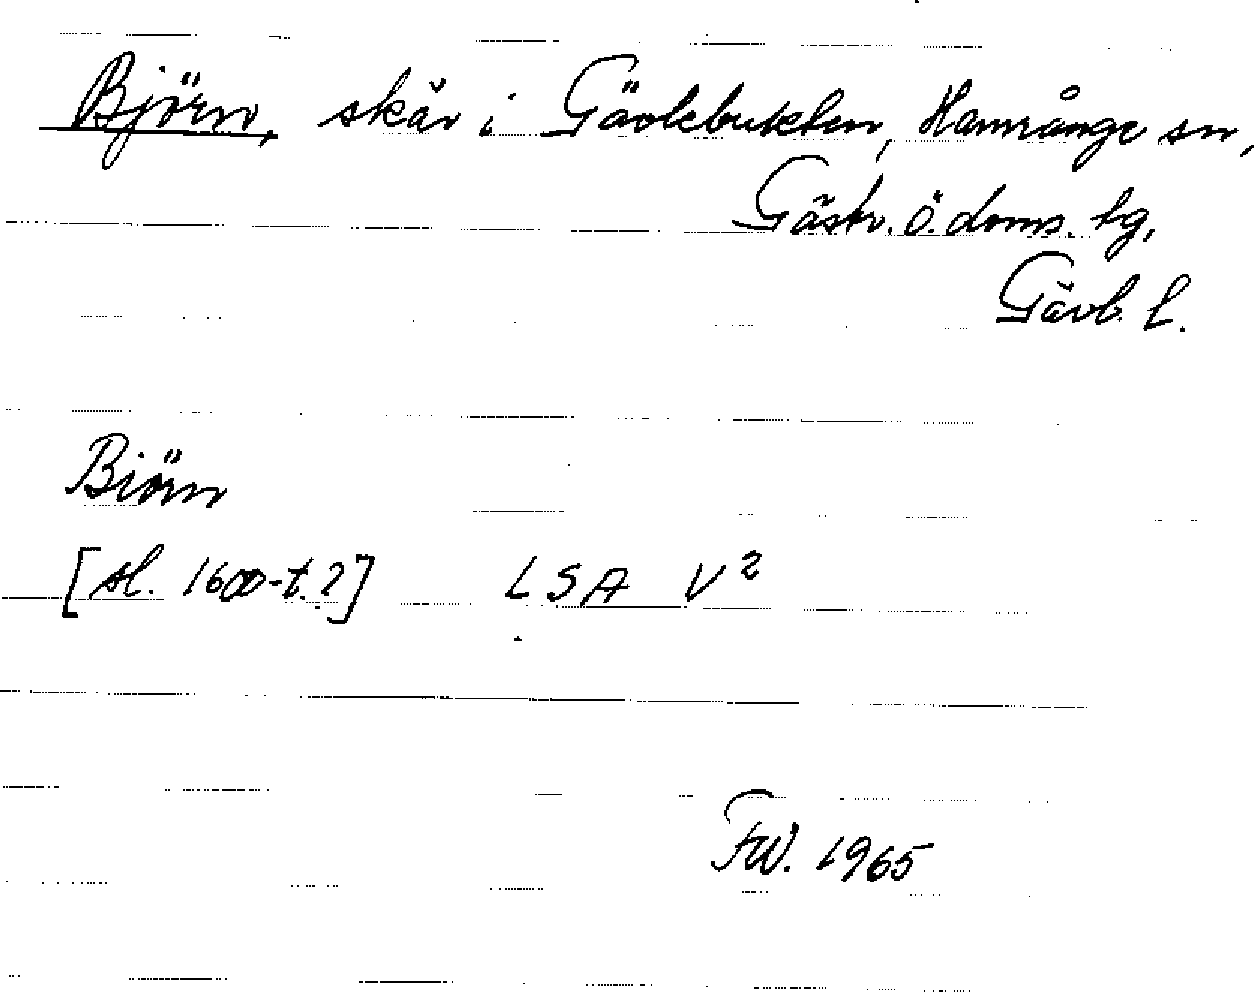 Björn, skär i Gävlebukten, Hamrånge sn,
Gästr. ö. doms. tg,
Gävb. l.
Biörn
[sl. 1600-t.?] LSA V²
FW. 1965